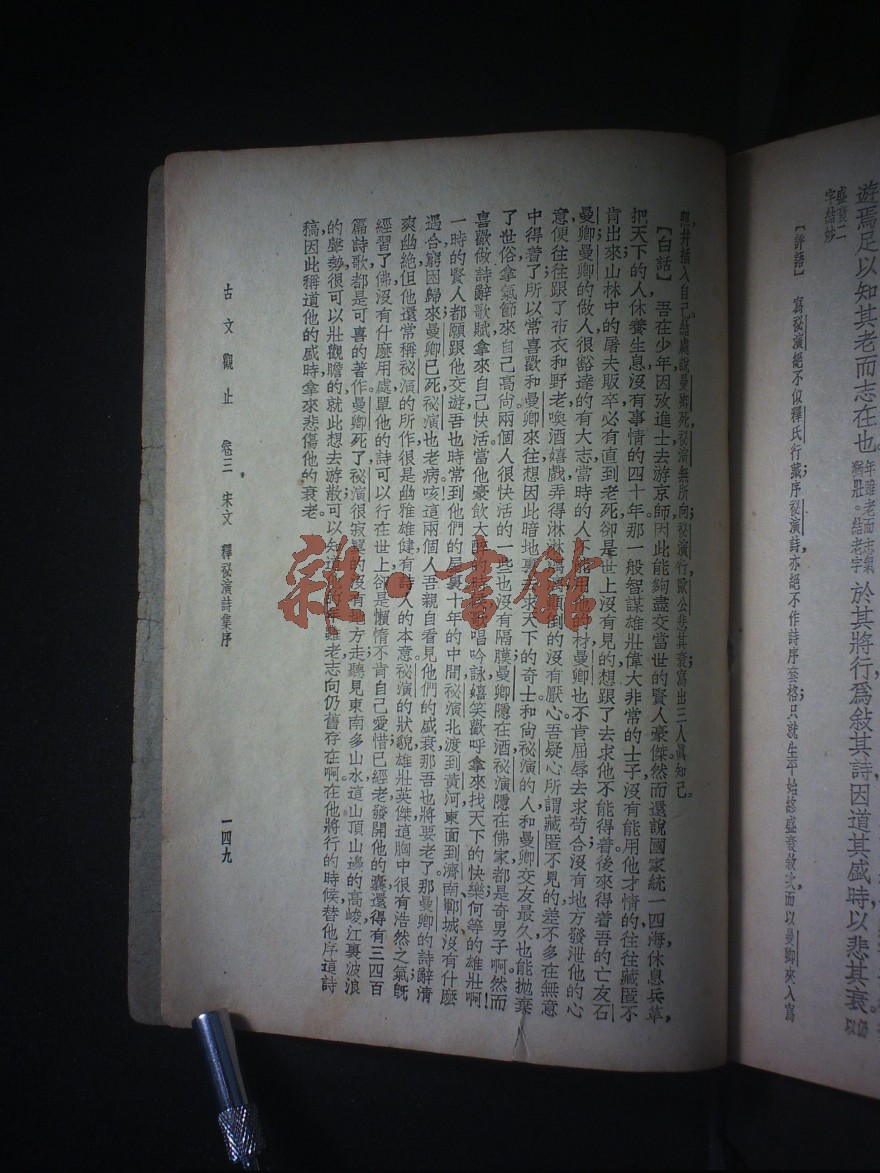 遊焉足以知其老而志在也。年雖老而志氣猶壯。結老字於其將行爲敍其詩因道其盛時以悲其衰。
盛衰二字結妙
【評語】 寫秘演絕不似釋氏行藏序秘演詩亦絕不作詩序套格只就生平始終盛衰敍次而以曼卿夾入寫
照并插入自己結處說曼卿死秘演無所向秘演行歐公悲其衰寫出三人眞知己。
【白話】 吾在少年因攷進士去游京師因此能夠盡交當世的賢人豪傑然而還說國家統一四海休息兵革，
把天下的人休養生息沒有事情的四十年那一般智謀雄壯偉大非常的士子沒有能用他才情的往往藏匿不
肯出來；山林中的屠夫販卒必有直到老死卻是世上沒有見的想跟了去求他不能得着後來得着吾的亡友石
曼卿曼卿的做人很豁達的有大志當時的人不能用他的材曼卿也不肯屈辱去求苟合沒有地方發泄他的心
意便往往跟了布衣和野老喚酒嬉戲弄得淋淋漓漓顛倒的沒有厭心吾疑心所謂藏匿不見的差不多在無意
中得着了所以常喜歡和曼卿來往想因此暗地裏求天下的奇士和尚祕演的人和曼卿交友最久也能拋棄
了世俗拿氣節來自己高尚兩個人很快活的一些也沒有隔膜曼卿隱在酒祕演隱在佛家都是奇男子啊然而
喜歡做詩辭歌賦拿來自己快活當他豪飲大醉的時候歌唱吟詠嬉笑歡呼拿來找天下的快樂何等的雄壯啊！
一時的賢人都願跟他交遊吾也時常到他們的屋裏十年的中間祕演北渡到黃河東面到濟南鄆城沒有什麽
遇合窮困歸來曼卿已死祕演也老病咳這兩個人吾親自看見他們的盛衰那吾也將要老了。那曼卿的詩辭清
爽幽絕但他還常稱祕演的所作很是幽雅雄健有詩人的本意祕演的狀貌雄壯英傑這胸中很有浩然之氣旣
經習了佛沒有什麽用處單他的詩可以行在世上卻是懶惰不肯自己愛惜已經老發開他的囊還得有三四百
篇詩歌都是可喜的著作曼卿死了祕演很寂寞的沒有地方走聽見東南多山水這山頂山邊的高峻江裏波浪
的聲勢很可以壯觀瞻的就此想去游散可以知道他的年雖老志向仍舊存在啊在他將行的時候替他序這詩
稿因此稱道他的盛時拿來悲傷他的衰老。
古文觀止 卷三 宋文 釋祕演詩集序 一四九
雜·書館